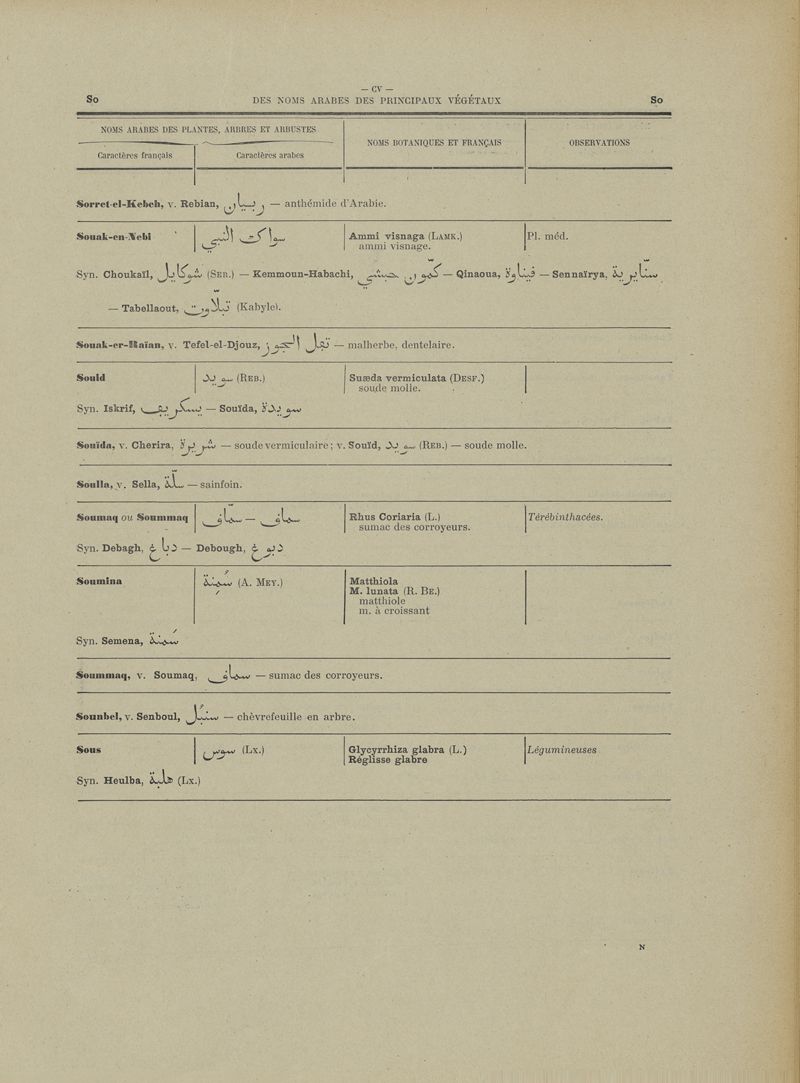 — CV —
So DES NOMS ARABES DES PRINCIPAUX VÉGÉTAUX So
NOMS ARABES DES PLANTES, ARBRES ET ARBUSTES
NOMS BOTANIQUES ET FRANÇAIS
OBSERVATIONS
Caractères français
Caractères arabes
Sorret-el-Kebch, v. Rebian, ربيان — anthémide d'Arabie.
Souak-en-Nebi
سواك النبي
Ammi visnaga (LAMK.)
ammi visnage.
Pl. méd.
Syn. Choukaïl, شوكايل (SER.) — Kemmoun-Habachi, كمون حبشي — Qinaoua, قيناوة — Sennaïrya, سنايرية
— Tabellaout, (Kabyle).
Souak-er-Raïan, v. Tefel-el-Djouz, تفل الجوز — malherbe, dentelaire.
Souid
سويد (REB.)
Suæda vermiculata (DESF.)
soude molle.
Syn. Iskrif, يسكريف — Souïda, سويدة
Souïda, v. Cherira, شريرة — soude vermiculaire; v. Souïd, سويد (REB.) — soude molle.
Soulla, v. Sella, سلّة — sainfoin.
Soumaq ou Soummaq
سماق — سمّاق
Rhus Coriaria (L.)
sumac des corroyeurs.
Térébinthacées.
Syn. Debagh, دباغ — Debough, دبوغ
Soumina
سمينة (A. MEY.)
Matthiola
M. lunata (R. BR.)
matthiole
m. à croissant
Syn. Semena, سمنة
Soummaq, v. Soumaq, سماق — sumac des corroyeurs.
Sounbel, v. Senboul, سنبل — chèvrefeuille en arbre.
Sous
سوس (LX.)
Glycyrrhiza glabra (L.)
Réglisse glabre
Légumineuses
Syn. Heulba, هلبة (LX.)
N